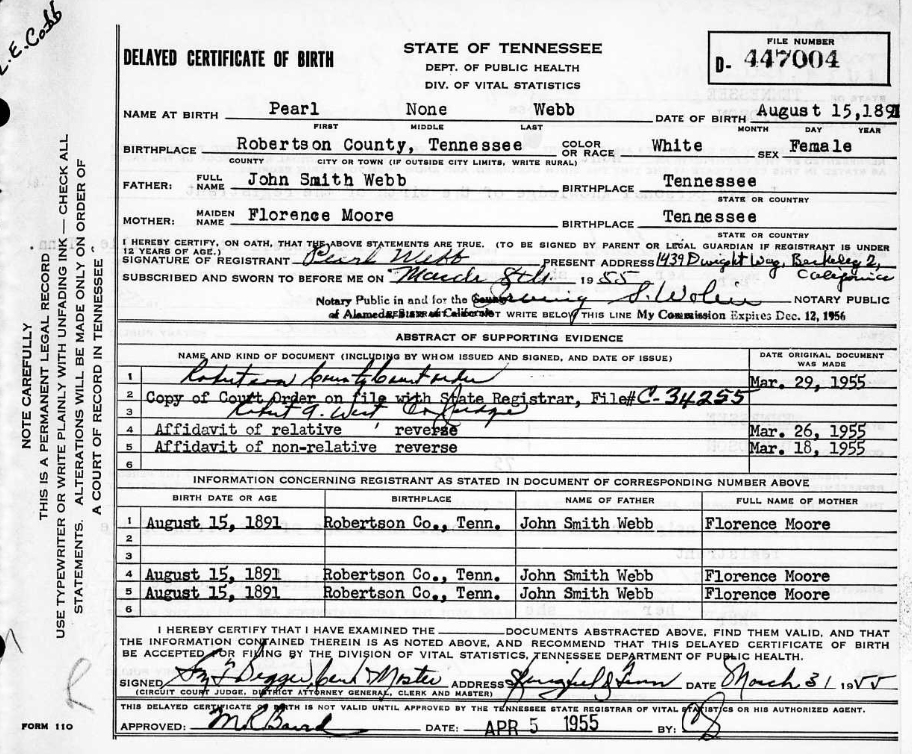 L. E. Cobb
NOTE CAREFULLY
THIS IS A PERMANENT LEGAL RECORD
USE TYPEWRITER OR WRITE PLAINLY WITH UNFADING INK — CHECK ALL
STATEMENTS. ALTERATIONS WILL BE MADE ONLY ON ORDER OF
A COURT OF RECORD IN TENNESSEE
FORM 110
DELAYED CERTIFICATE OF BIRTH
STATE OF TENNESSEE
DEPT. OF PUBLIC HEALTH
DIV. OF VITAL STATISTICS
FILE NUMBER
D- 447004
NAME AT BIRTH Pearl None Webb DATE OF BIRTH August 15, 1891
FIRST MIDDLE LAST MONTH DAY YEAR
BIRTHPLACE Robertson County, Tennessee COLOR OR RACE White SEX Female
COUNTY CITY OR TOWN (IF OUTSIDE CITY LIMITS, WRITE RURAL)
FATHER: FULL NAME John Smith Webb BIRTHPLACE Tennessee
STATE OR COUNTRY
MOTHER: MAIDEN NAME Florence Moore BIRTHPLACE Tennessee
STATE OR COUNTRY
I HEREBY CERTIFY, ON OATH, THAT THE ABOVE STATEMENTS ARE TRUE. (TO BE SIGNED BY PARENT OR LEGAL GUARDIAN IF REGISTRANT IS UNDER
12 YEARS OF AGE.)
SIGNATURE OF REGISTRANT Pearl Webb PRESENT ADDRESS 1439 Dwight Way, Berkeley 2,
California
SUBSCRIBED AND SWORN TO BEFORE ME ON March 8th 1955
Notary Public in and for the County S. Wolin NOTARY PUBLIC
of Alameda, State of California NOT WRITE BELOW THIS LINE My Commission Expires Dec. 12, 1956
ABSTRACT OF SUPPORTING EVIDENCE
NAME AND KIND OF DOCUMENT (INCLUDING BY WHOM ISSUED AND SIGNED, AND DATE OF ISSUE) DATE ORIGINAL DOCUMENT WAS MADE
1 Robertson County Court order Mar. 29, 1955
2 Copy of Court Order on file with State Registrar, File# C-34255
3 Robert G. West Co Judge
4 Affidavit of relative reverse Mar. 26, 1955
5 Affidavit of non-relative reverse Mar. 18, 1955
6
INFORMATION CONCERNING REGISTRANT AS STATED IN DOCUMENT OF CORRESPONDING NUMBER ABOVE
BIRTH DATE OR AGE BIRTHPLACE NAME OF FATHER FULL NAME OF MOTHER
1 August 15, 1891 Robertson Co., Tenn. John Smith Webb Florence Moore
2
3
4 August 15, 1891 Robertson Co., Tenn. John Smith Webb Florence Moore
5 August 15, 1891 Robertson Co., Tenn. John Smith Webb Florence Moore
6
I HEREBY CERTIFY THAT I HAVE EXAMINED THE DOCUMENTS ABSTRACTED ABOVE, FIND THEM VALID, AND THAT
THE INFORMATION CONTAINED THEREIN IS AS NOTED ABOVE, AND RECOMMEND THAT THIS DELAYED CERTIFICATE OF BIRTH
BE ACCEPTED FOR FILING BY THE DIVISION OF VITAL STATISTICS, TENNESSEE DEPARTMENT OF PUBLIC HEALTH.
SIGNED Master ADDRESS Springfield Tenn DATE March 31 1955
(CIRCUIT COURT JUDGE, DISTRICT ATTORNEY GENERAL, CLERK AND MASTER)
THIS DELAYED CERTIFICATE OF BIRTH IS NOT VALID UNTIL APPROVED BY THE TENNESSEE STATE REGISTRAR OF VITAL STATISTICS OR HIS AUTHORIZED AGENT.
APPROVED: DATE: APR 5 1955 BY: